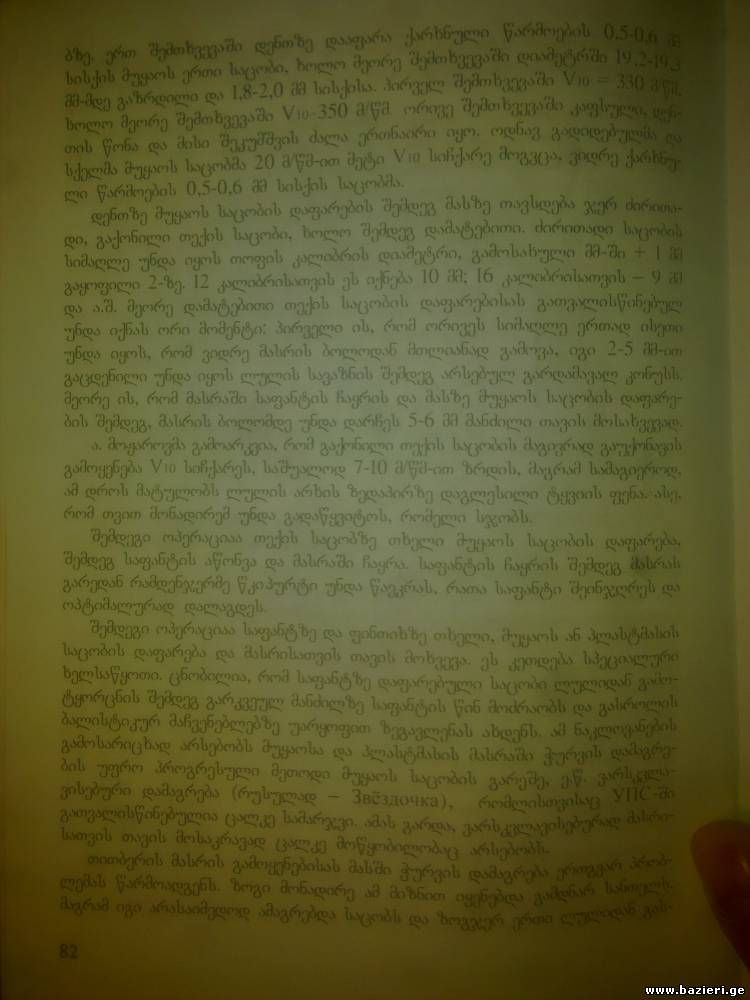 ბზე. ერთ შემთხვევაში დენთზე დააფარა ქარხნული წარმოების 0,5-0,6 მმ
სისქის მუყაოს ერთი საცობი, ხოლო მეორე შემთხვევაში დიამეტრში 19,2-19,3
მმ-მდე გაზრდილი და 1,8-2,0 მმ სისქისა. პირველ შემთხვევაში V10 = 330 მ/წმ,
ხოლო მეორე შემთხვევაში V10-350 მ/წმ ორივე შემთხვევაში კაფსული, დენ-
თის წონა და მისი შეკუმშვის ძალა ერთნაირი იყო. ოდნავ გადიდებულმა და
სქელმა მუყაოს საცობმა 20 მ/წმ-ით მეტი V10 სიჩქარე მოგვცა, ვიდრე ქარხნუ-
ლი წარმოების 0,5-0,6 მმ სისქის საცობმა.
დენთზე მუყაოს საცობის დაფარების შემდეგ მასზე თავსდება ჯერ ძირითა-
დი, გაქონილი თექის საცობი, ხოლო შემდეგ დამატებითი. ძირითადი საცობის
სიმაღლე უნდა იყოს თოფის კალიბრის დიამეტრი, გამოსახული მმ-ში + 1 მმ
გაყოფილი 2-ზე. 12 კალიბრისათვის ეს იქნება 10 მმ; 16 კალიბრისათვის – 9 მმ
და ა.შ. მეორე დამატებითი თექის საცობის დაფარებისას გათვალისწინებულ
უნდა იქნას ორი მომენტი: პირველი ის, რომ ორივეს სიმაღლე ერთად ისეთი
უნდა იყოს, რომ ვიდრე მასრის ბოლოდან მთლიანად გამოვა, იგი 2-5 მმ-ით
გაცდენილი უნდა იყოს ლულის სავაზნის შემდეგ არსებულ გარდამავალ კონუსს.
მეორე ის, რომ მასრაში საფანტის ჩაყრის და მასზე მუყაოს საცობის დაფარე-
ბის შემდეგ, მასრის ბოლომდე უნდა დარჩეს 5-6 მმ მანძილი თავის მოსახვევად.
ა. მოყაროვმა გამოარკვია, რომ გაქონილი თექის საცობის მაგივრად გაუქონავის
გამოყენება V10 სიჩქარეს, საშუალოდ 7-10 მ/წმ-ით ზრდის, მაგრამ სამაგიეროდ,
ამ დროს მატულობს ლულის არხის ზედაპირზე დაგლესილი ტყვიის ფენა. ასე,
რომ თვით მონადირემ უნდა გადაწყვიტოს, რომელი სჯობს.
შემდეგი ოპერაციაა თექის საცობზე თხელი მუყაოს საცობის დაფარება,
შემდეგ საფანტის აწონვა და მასრაში ჩაყრა. საფანტის ჩაყრის შემდეგ მასრას
გარედან რამდენჯერმე წკიპურტი უნდა წაეკრას, რათა საფანტი შეინჯღრეს და
ოპტიმალურად დალაგდეს.
შემდეგი ოპერაციაა საფანტზე და ფინთიხზე თხელი, მუყაოს ან პლასტმასის
საცობის დაფარება და მასრისათვის თავის მოხვევა. ეს კეთდება სპეციალური
ხელსაწყოთი. ცნობილია, რომ საფანტზე დაფარებული საცობი ლულიდან გამო-
ტყორცნის შემდეგ გარკვეულ მანძილზე საფანტის წინ მოძრაობს და გასროლის
ბალისტიკურ მაჩვენებლებზე უარყოფით ზეგავლენას ახდენს. ამ ნაკლოვანების
გამოსარიცხად არსებობს მუყაოსა და პლასტმასის მასრაში ჭურვის დამაგრე-
ბის უფრო პროგრესული მეთოდი მუყაოს საცობის გარეშე, ე.წ. ვარსკვლა-
ვისებური დამაგრება (რუსულად – Звёздочка), რომლისთვისაც УПС-ში
გათვალისწინებულია ცალკე სამარჯვი. ამას გარდა, ვარსკვლავისებურად მასრი-
სათვის თავის მოსაკრავად ცალკე მოწყობილობაც არსებობს.
თითბერის მასრის გამოყენებისას მასში ჭურვის დამაგრება ერთგვარ პრობ-
ლემას წარმოადგენს. ზოგი მონადირე ამ მიზნით იყენებდა გამდნარ სანთელს,
მაგრამ იგი არასაიმედოდ ამაგრებდა საცობს და ზოგჯერ ერთი ლულიდან გას-
82
www.bazieri.ge